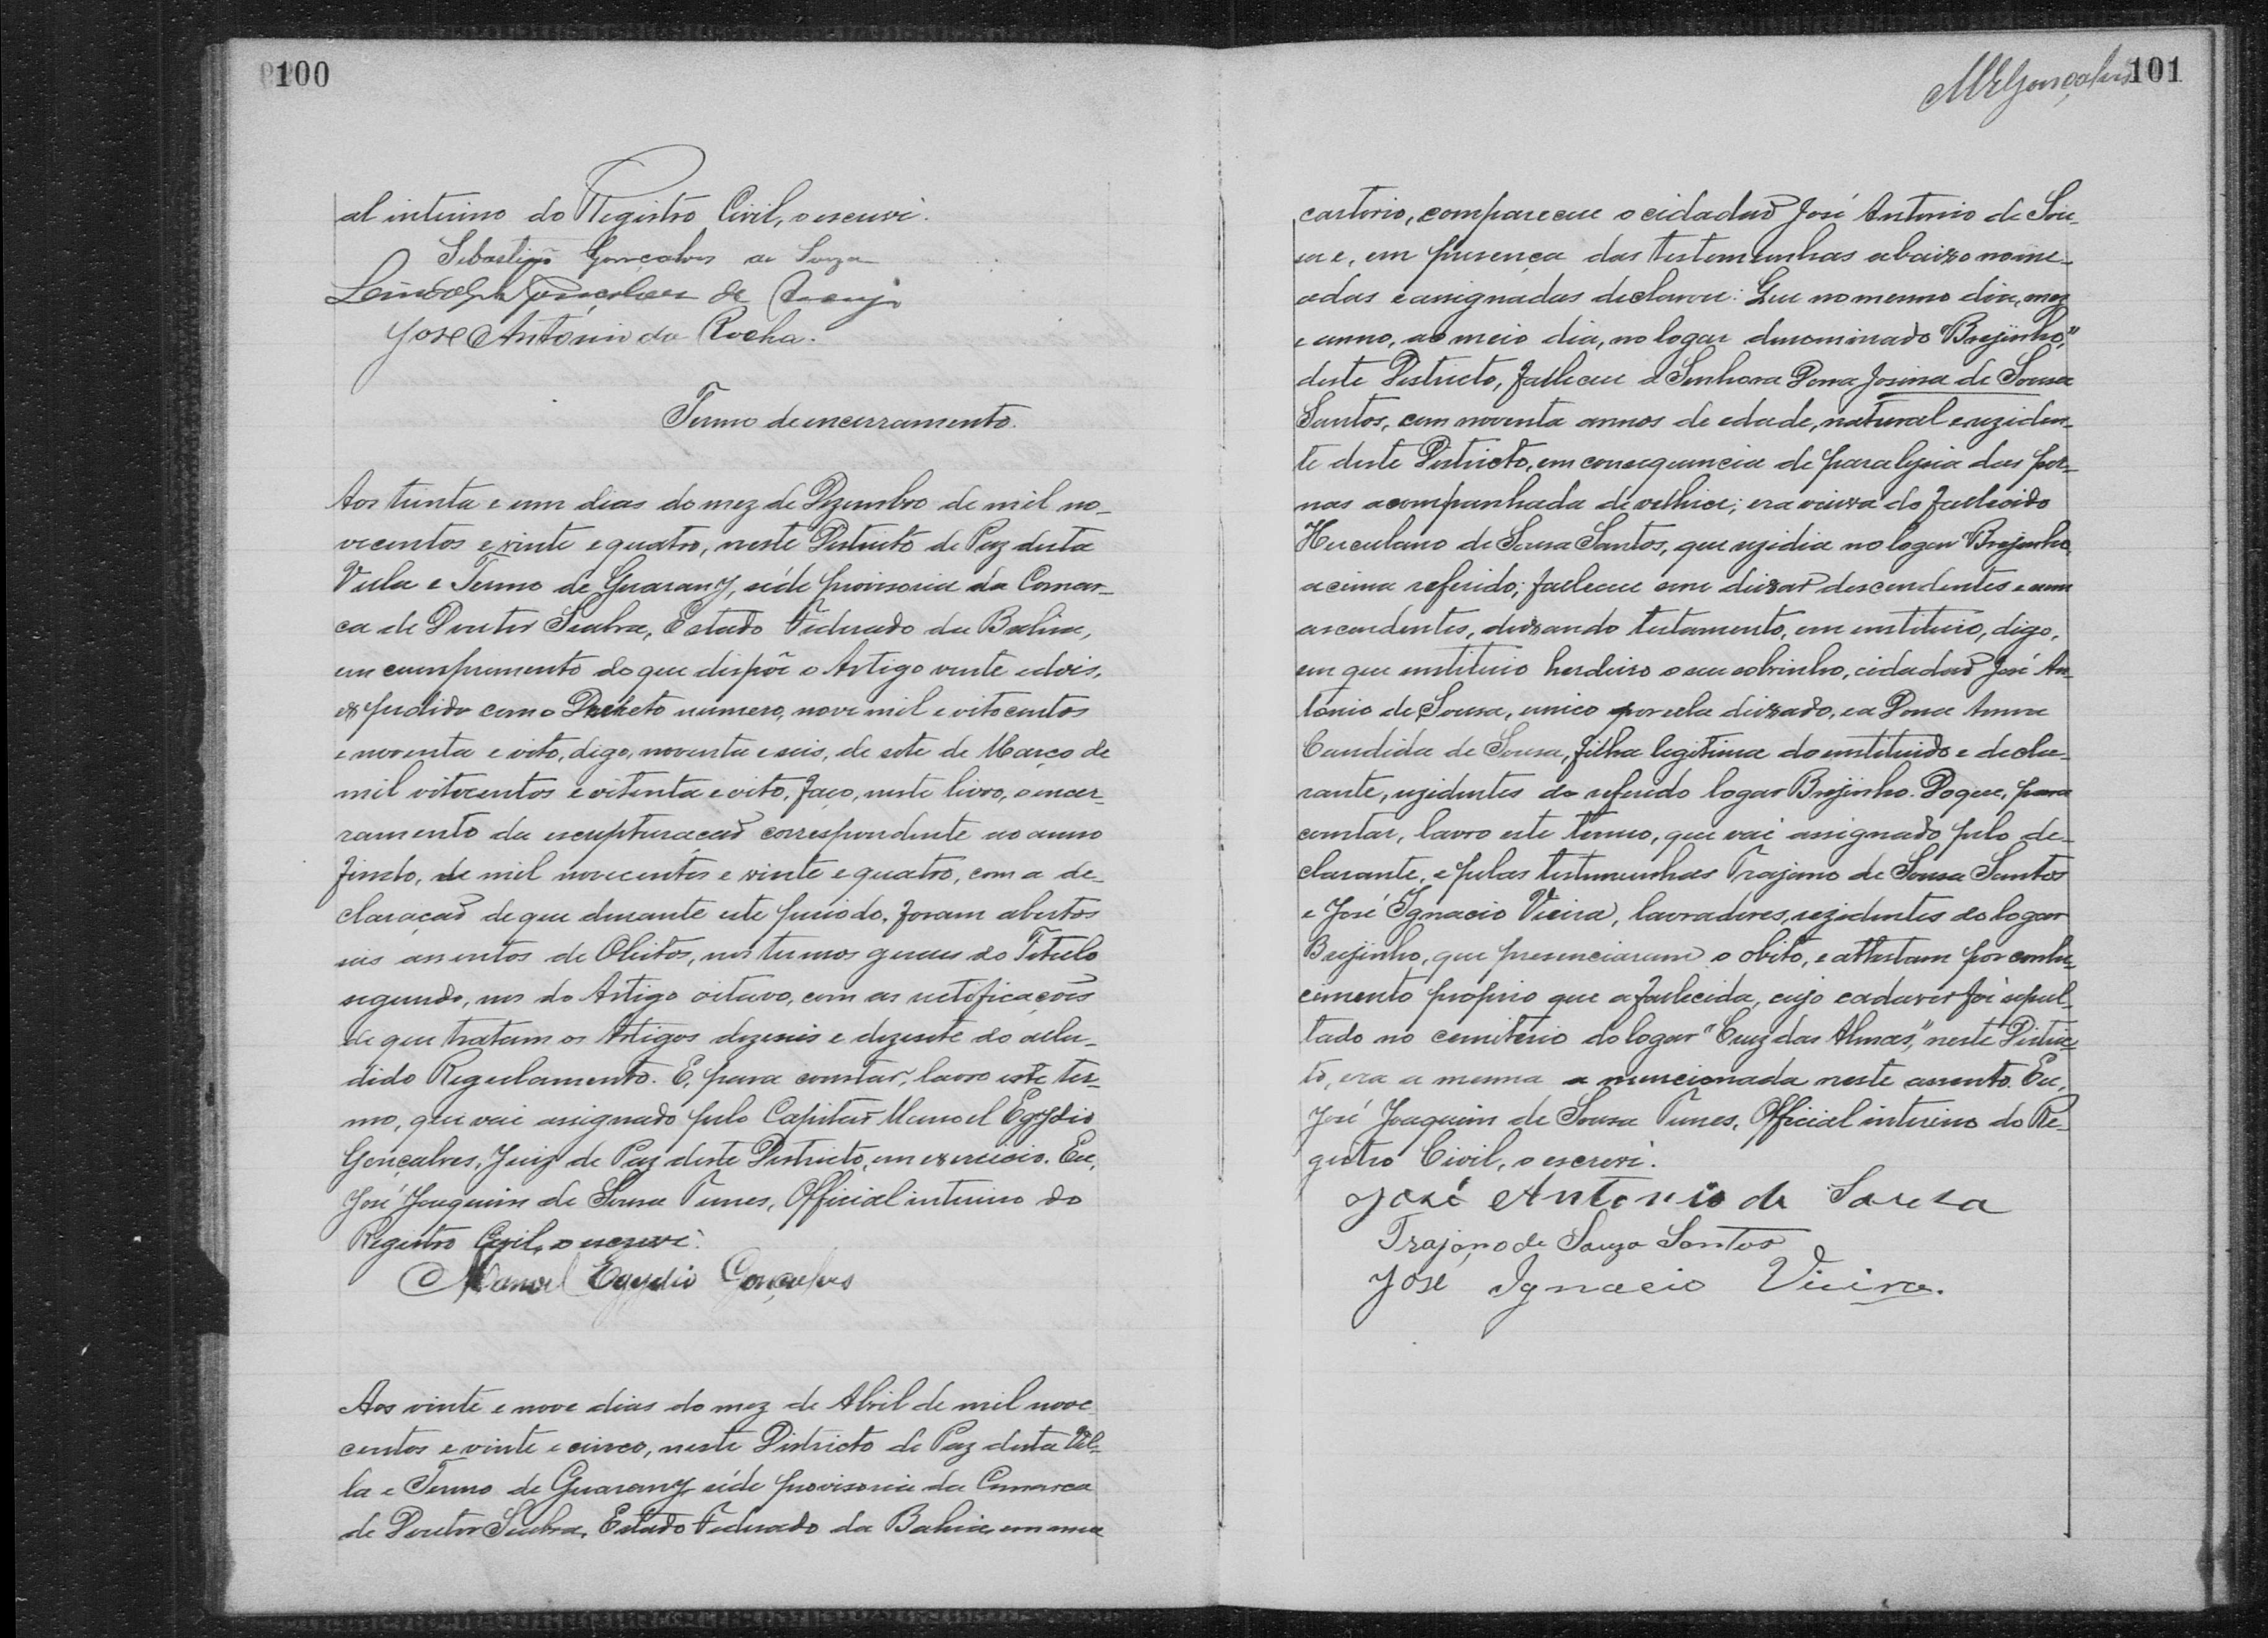 100
al interino do Registro Civil, o escrevi.
Sebastião Gonçalves de Souza
Gonçalves de Araujo
José Antonio da Rocha.
Termo de encerramento.
Aos trinta e um dias do mez de Dezembro de mil no-
vecentos e vinte e quatro, neste Districto de Paz desta
Villa e Termo de Guarany, séde provisoria da Comar-
ca de Doutor Seabra, Estado Federado da Bahia,
em cumprimento do que dispõe o Artigo vinte e dois,
expedido com o Decreto numero, nove mil e oitocentos
e noventa e oito, digo, noventa e seis, de sete de Março de
mil oitocentos e oitenta e oito, faço, neste livro, o encer-
ramento da escripturação correspondente ao anno
findo, de mil novecentos e vinte e quatro, com a de-
claração de que durante este periodo, foram abertos
seis assentos de Obitos, nos termos geraes do Titulo
segundo, nos do Artigo oitavo, com as rectificações
de que tratam os Artigos dezeseis e dezesete do allu-
dido Regulamento. E, para constar, lavro este ter-
mo, que vai assignado pelo Capitão Manoel Egydio
Gonçalves, Juiz de Paz deste Districto, em exercicio. Eu,
José Joaquim de Sousa Tunes, Official interino do
Registro Civil, o escrevi.
Manoel Egydio Gonçalves
Aos vinte e nove dias do mez de Abril de mil nove
centos e vinte e cinco, neste Districto de Paz desta Vil-
la e Termo de Guarany séde provisoria da Comarca
de Doutor Seabra, Estado Federado da Bahia, em meu
MEGonçalves 101
cartorio, compareceu o cidadão José Antonio de Sou-
sa e, em presença das testemunhas abaixo nome-
adas e assignadas declarou: Que no mesmo dia, mez
e anno, ao meio dia, no logar denominado "Brejinho,"
deste Districto, falleceu a Senhora Dona Josina de Sousa
Santos, com noventa annos de edade, natural e reziden-
te deste Districto, em consequencia de paralysia das per-
nas acompanhada de velhice; era viuva do fallecido
Herculano de Sousa Santos, que rezidia no logar "Brejinho,
acima referido; falleceu sem deixar descendentes e nem
ascendentes, deixando testamento, em instituio, digo,
em que instituio herdeiro o seu sobrinho, cidadão José An-
tonio de Sousa, unico por ela deixado, e a Dona Anna
Candida de Sousa, filha legitima do instituido e decla-
rante, rezidentes do referido logar Brejinho. Do que, para
constar, lavro este termo, que vai assignado pelo de-
clarante, e pelas testemunhas Trajano de Sousa Santos
e José Ignacio Vieira, lavradores, rezidentes do logar
Brejinho, que presenciaram o obito, e attestam por conhe-
cimento proprio que a fallecida, cujo cadaver foi sepul-
tado no cemiterio do logar "Cruz das Almas," neste Distric-
to, era a mesma a mencionada neste assento. Eu,
José Joaquim de Sousa Tunes, Official interino do Re-
gistro Civil, o escrevi.
José Antonio de Souza
Trajano de Souza Santos
José Ignacio Vieira.